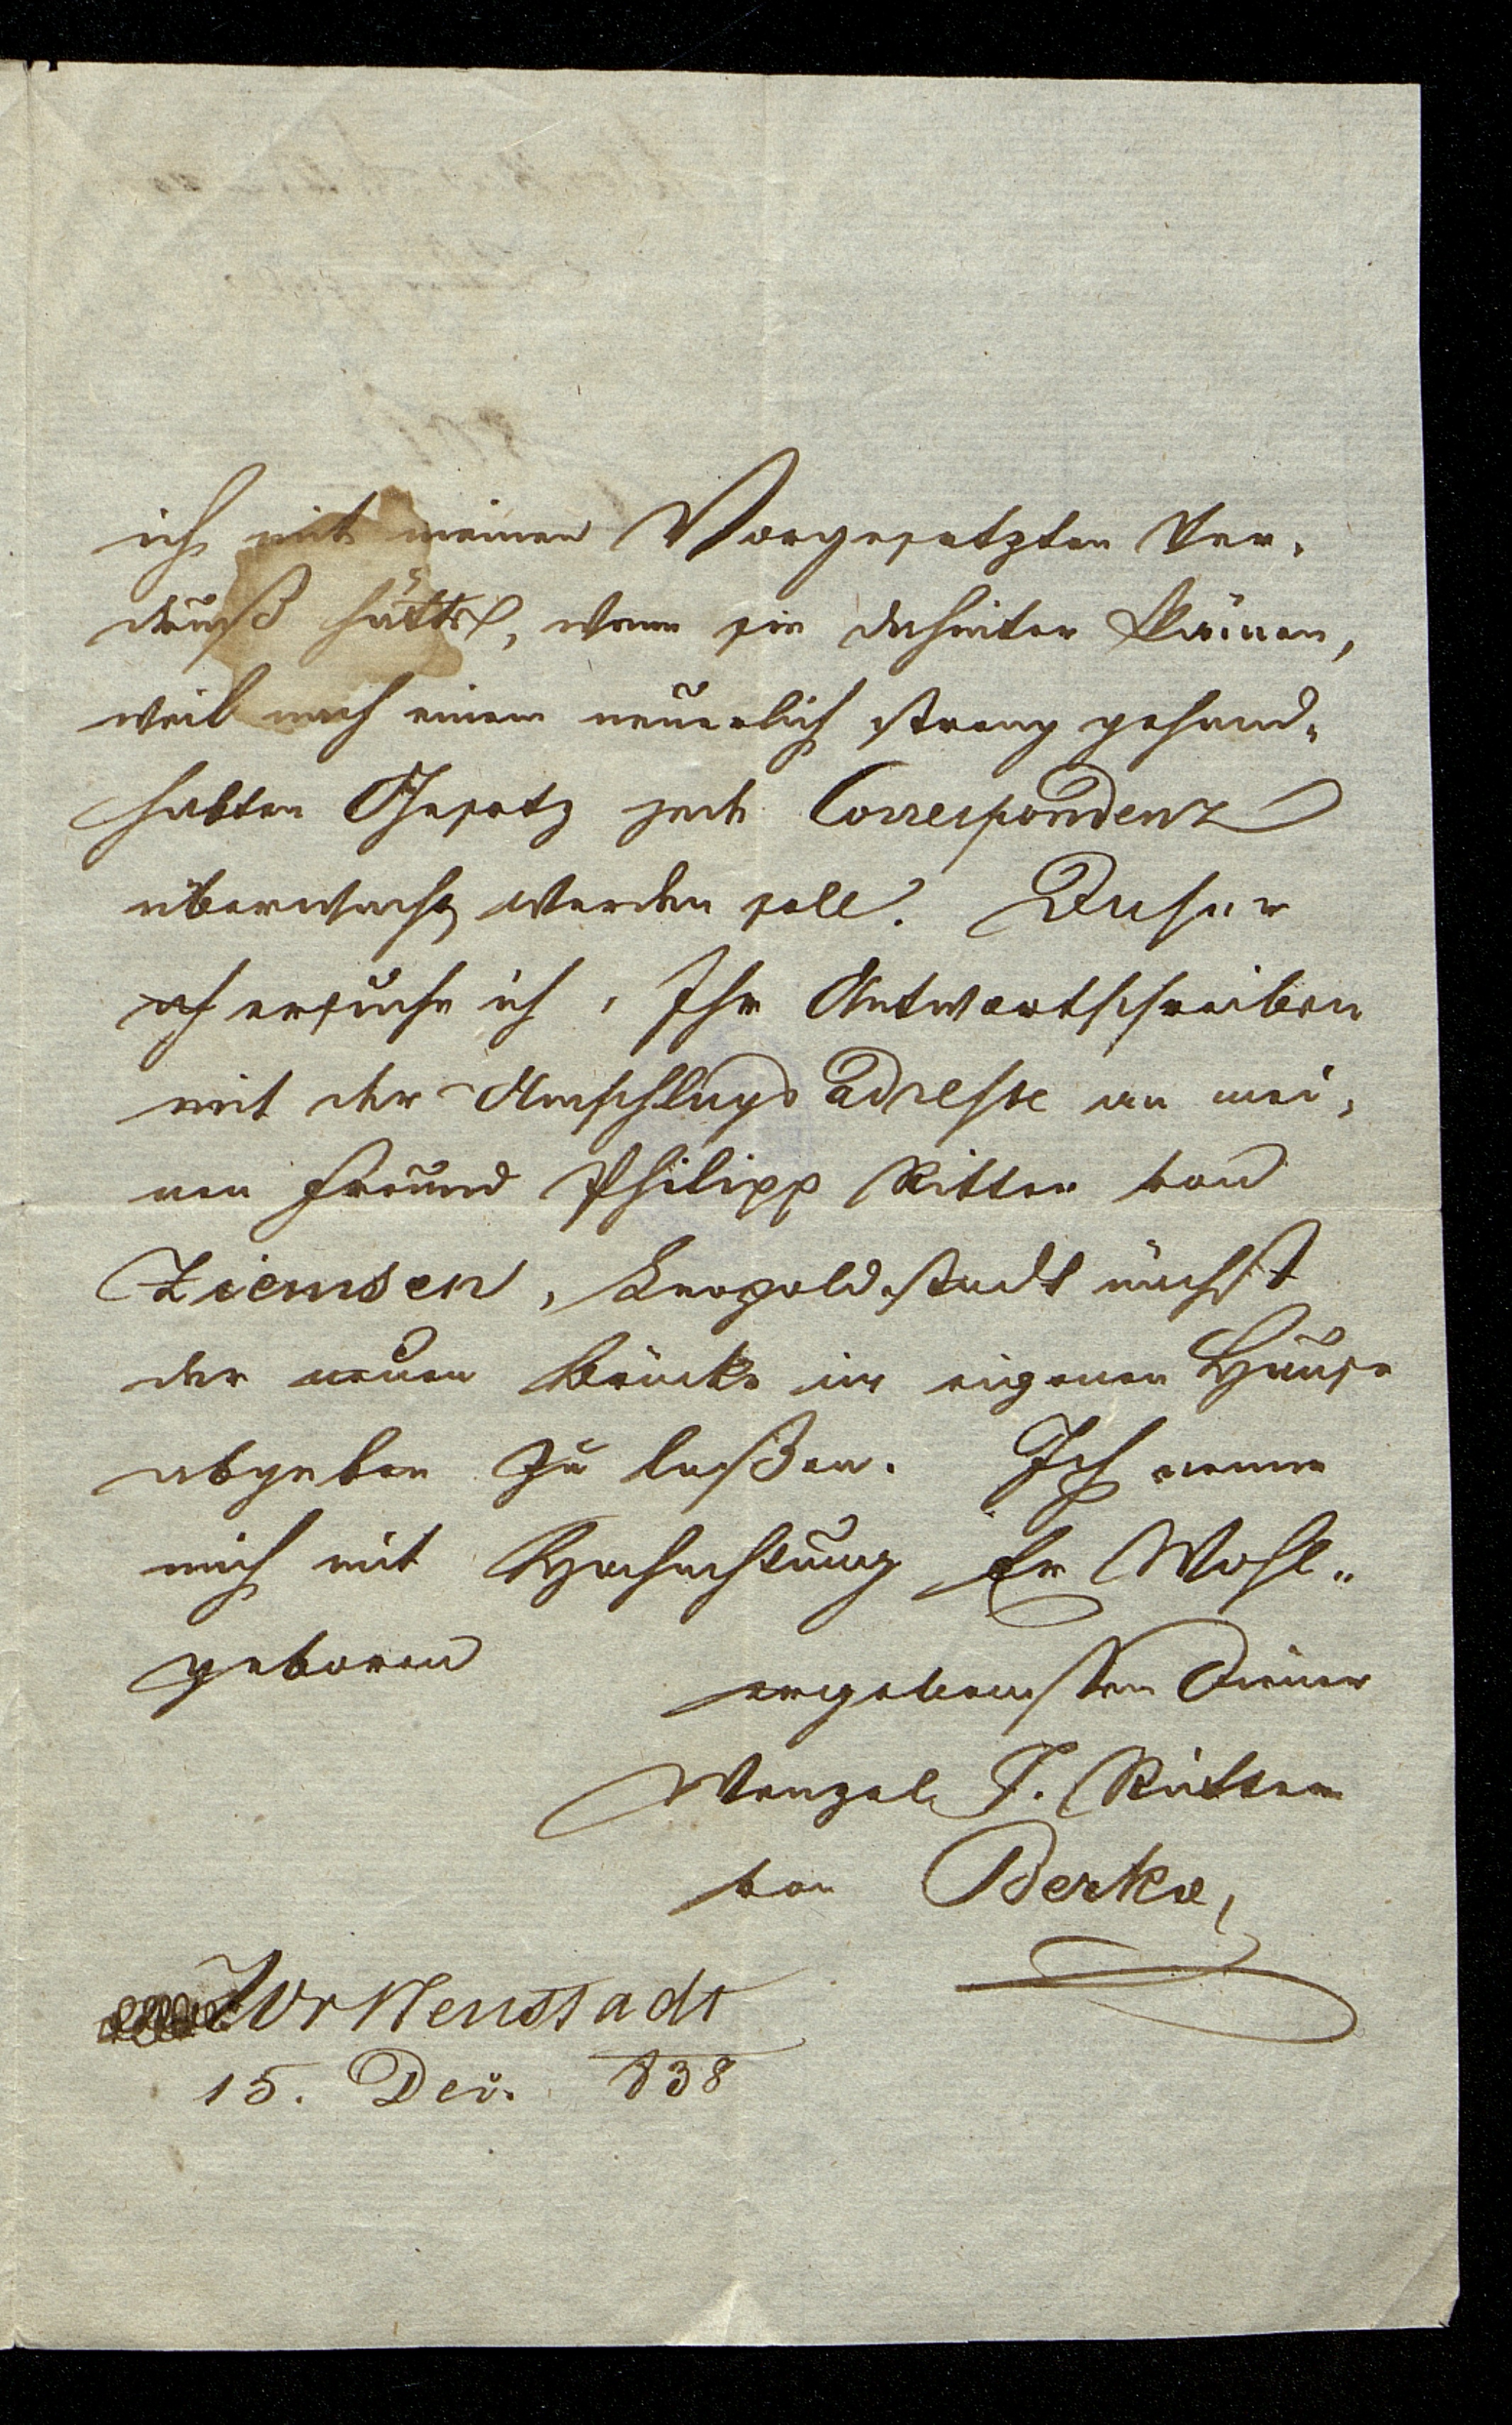 ich mit meinen Vorgesetzten Ver-
druß hätte, wenn sie dahinter kämen,
weil nach einem neuerlich streng gehand-
habten Gesetz jede Correspondenz
überwacht werden soll. Daher
ersuche ich, Ihr Antwortschreiben
mit der Umschlags adresse an mei-
nen Freund Philipp Ritter von
Ziemsen, Leopoldstadt nächst
der neuen Brücke im eigenen Hause
abgeben zu laßen. Ich nenne
mich mit Hochachtung Er Wohl-
geboren
ergebensten Diener
Wenzel T. Ritter
von Berka,
Wr Neustadt
15. Dez. 838